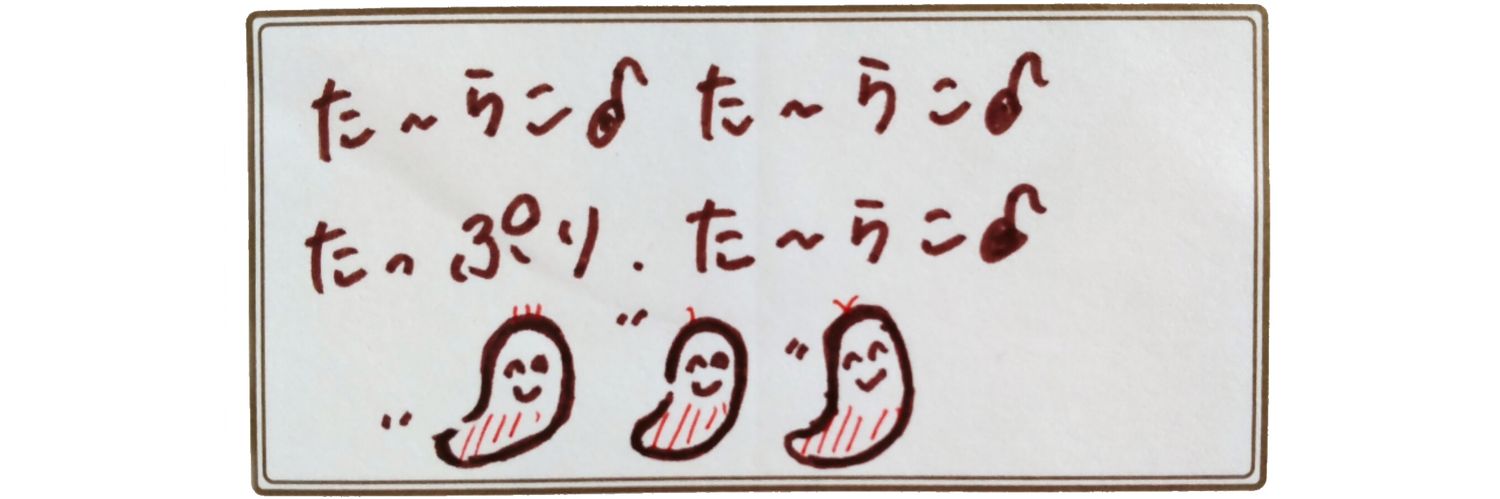 た～らこ♪ た～らこ♪
たっぷり.た～らこ♪